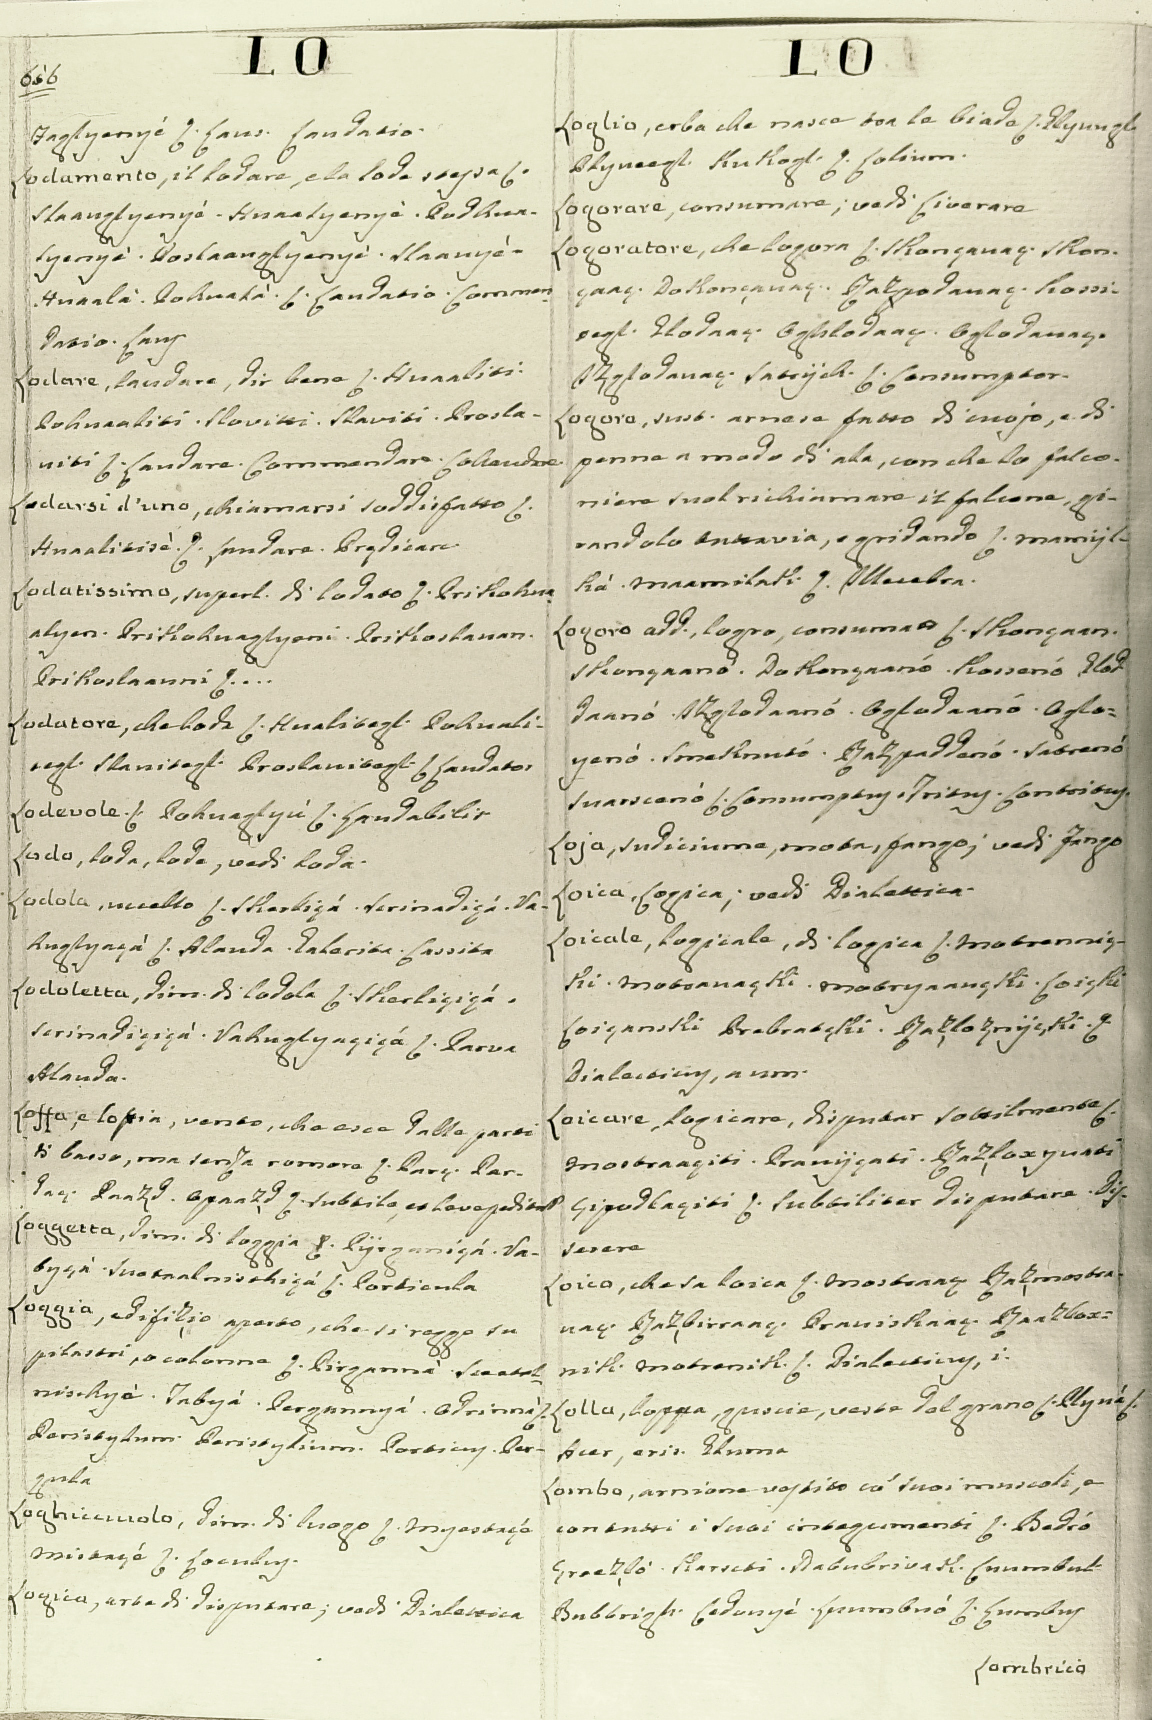 656
LO
LO
Faglyenyé ξ. Laus. Laudatio.
Lodamento, il lodare, e la lode stessa ξ.
Slaauglyenyé. Huaalyenyé. Podhua-
lyenyé. Poslaauglyenyé. Slaauyé.
Huaalà. Pohualà. ξ. Laudatio. Commen
datio. Laus
Lodare, laudare, dir bene ξ. Huaaliti.
Pohuaaliti. Slovitti. Slaviti. Prosla-
uiti ξ. Laudare. Commendare. Collaudare
Lodarsi d'uno, chiamarsi soddisfatto ξ.
Huaalitisé. ξ. Laudare. Prędicare
Lodatissimo, superl. di lodato ξ. Prikohua
alyen. Prikohuaglyeni. Prikoslauan.
Prikoslaauni ξ....
Lodatore, che loda ξ. Hualitegl. Pohuali-
tegl. Slauitegl. Proslauitegl. ξ Laudator
Lodevole. ξ. Pohuaglyú ξ. Laudabilis
Lodo, loda, lode, vedi loda.
Lodola, uccello ξ. Skerligá. Scrinadigá. Va-
kuglyaçá ξ. Alauda. Galerita. Cassita
Lodoletta, dim. di lodola ξ. Skerligigá.
Scrinadigigá. Vakuglyagigá ξ. Parva
Alauda.
Loffa, e loffia, vento, che esce dalle parti
di basso, ma senza romore ξ. Parç. Par-
daç. Paazd. Opaazd ξ. subtile, et leve peditum
Loggetta, dim. di loggia ξ. Pijrganigá. Va-
byçá. Suotaalnischigá ξ. Porticula
Loggia, edifizio aperto, che si regge su
pilastri, o colonne ξ. Pirganná. Suotal-
nischyé. Tabyá. Pergunnyá. Odrinná ξ.
Peristylum. Peristylium. Porticus. Per-
gula
Loghicciuolo, dim. di luogo ξ. Myestaçé
Mistaçé ξ. Loculus.
Logica, arte di disputare; vedi Dialettica
Loglio, erba che nasce tra le biade ξ. Glyuugl.
Glyueegl. Kukogl. ξ. Lolium.
Logorare, consumare; vedi Liverare
Logoratore, che logora ξ. Skonçauaç. Skon-
çaaç. Dokonçauaç. Razpodauaç. Kossi-
tegl. Glodaaç. Ogllodaaç. Oglodauaç.
Izglodauaç. Satrijch. ξ. Consumptor.
Logoro, sust. arnese fatto di cuojo, e di
penne a modo di ala, con che lo falco-
niere suol richiamare il falcone, gi-
randolo tuttavia, e gridando ξ. Mamijl-
ká. Maamilak. ξ. Illecebra.
Logoro add., logro, consumato ξ. Skonçaan.
Skonçaanó. Dokonçaanó. Kossenó Glod
daanó. Izglodaanó. Oglodaanó. Oglo-
yenó. Smeknutó. Razpaddenó. Satrenó
Suarscenó ξ. Consumptus. Tritus. Contritus.
Loja, sudiciume, mota, fango; vedi Fango
Loica, Logica; vedi Dialettica.
Loicale, logicale, di logica ξ. Motrenniç-
ki. Motrauaçki. Motryaauçki. Loiçki
Loiçanski Prebratçki. Razložnijçki. ξ
Dialecticus, a um.
Loicare, logicare, disputar sottilmente ξ.
Mostraaçiti. Prauijçati. Razloxyuati
Çipodlaçiti ξ. Subtiliter disputare. Dis-
serere
Loico, che sa loica ξ. Mostraaç Razmostra-
uaç. Razbirraaç. Prauiskaaç. Raazlox-
nik. Motrenik. ξ. Dialecticus, i.
Lolla, loppa, guscie, veste del grano ξ. Plyuá ξ.
Acer, eris. Gluma
Lombo, arnione vestito co' suoi muscoli, e
con tutti i suoi integumenti ξ. Bedró
Greezló. Karscti. Dabubrivak. Luumbul
Bubbrigh. Ledouyé. Luumbuó ξ. Lumbus
Lombrico